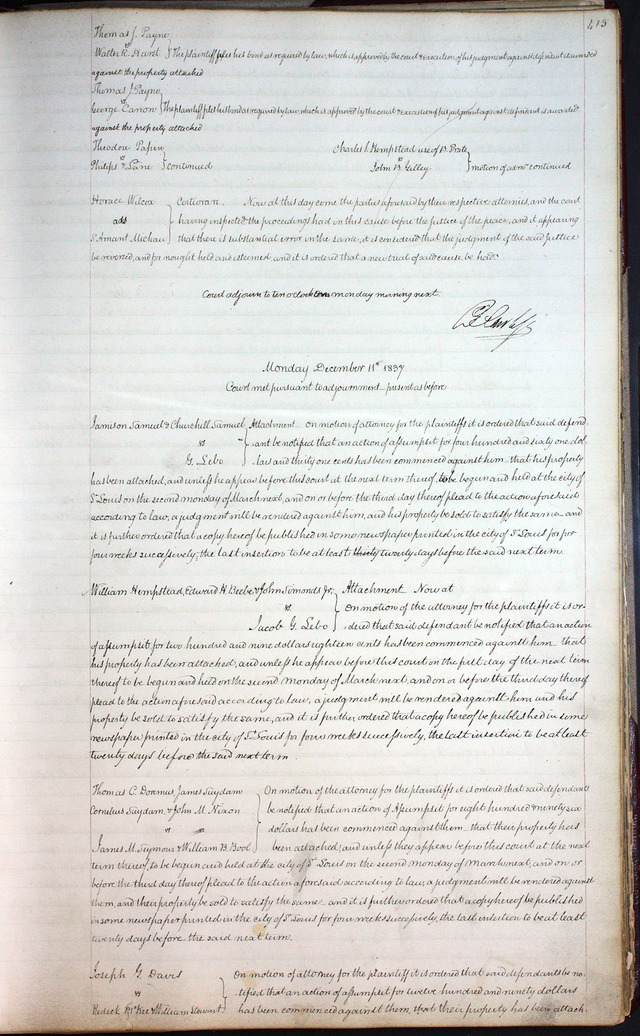 413
Thomas J. Payne
vs
Walter R. Hurd } The plaintiff files his bond as required by law, which is approved by the court & execution of his judgment against defendant is awarded
against the property attached
Thomas J. Payne
vs
George Canon } The plaintiff files his bond as required by law, which is approved by the court & execution of his judgment against defendant is awarded
against the property attached
Theodore Papin
vs
Philips & Lane } continued
Charles S. Hempstead use of B. Prate
vs
John B. Gilley } motion of admr continued
Horace Wilcox Certiorari. Now at this day come the parties aforesaid by their respective attornies, and the court
ads having inspected the proceedings had in this cause before the justice of the peace, and it appearing
St. Amant Michau that there is substantial error in the same, it is considered that the judgment of the said Justice
be reversed, and for nought held and esteemed and it is ordered that a new trial of said cause be had.
Court adjourn to ten oclock on monday morning next.
Monday December 11th 1837
Court met pursuant to adjournment present as before
Jameson Samuel & Churchill Samuel Attachment on motion of attorney for the plaintiffs it is ordered that said defend-
vs ant be notified that an action of assumpsit for four hundred and sixty one dol-
G. Lebo lars and thirty one cents has been commenced against him that his property
has been attached, and unless he appear before this court at the next term thereof, to be begun and held at the city of
St. Louis on the second monday of March next, and on or before the third day thereof plead to the action aforesaid
according to law, a judgment will be rendered against him, and his property be sold to satisfy the same and
it is further ordered that a copy hereof be published in some newspaper printed in the city of St Louis for for
four weeks successively, the last insertion to be at least thirty twenty days before the said next term.
William Hempstead, Edward H. Beebe & John Simonds Jr. Attachment Now at
vs On motion of the attorney for the plaintiffs it is or-
Jacob G. Lebo dered that said defendant be notified that an action
of assumpsit for two hundred and nine dollars eighteen cents has been commenced against him that
his property has been attached, and unless he appear before this court on the first day of the next term
thereof to be begun and held on the second Monday of March next, and on or before the third day thereof
plead to the action aforesaid according to law, a judgment will be rendered against him and his
property be sold to satisfy the same, and it is further ordered that a copy hereof be published in some
newspaper printed in the city of St. Louis for four weeks successively, the last insertion to be at least
twenty days before the said next term.
Thomas C. Doremus, James Suydam On motion of the attorney for the plaintiffs it is ordered that said defendants
Cornelius Suydam & John M. Nixon be notified that an action of Assumpsit for eight hundred & ninety six
vs dollars has been commenced against them that their property has
James M. Seymour & William B. Bool been attached, and unless they appear before this court at the next
term thereof, to be begun and held at the city of St Louis on the second monday of March next, and on or
before the third day thereof plead to the action aforesaid according to law, a judgment will be rendered against
them, and their property be sold to satisfy the same and it is further ordered that a copy hereof be published
in some newspaper printed in the city of St Louis for four weeks successively, the last insertion to be at least
twenty days before the said next term.
Joseph G. Davis On motion of attorney for the plaintiff it is ordered that said defendants be no-
vs tified that an action of assumpsit for twelve hundred and ninety dollars
Redick McKee & William Stewart has been commenced against them, that their property has been attach-